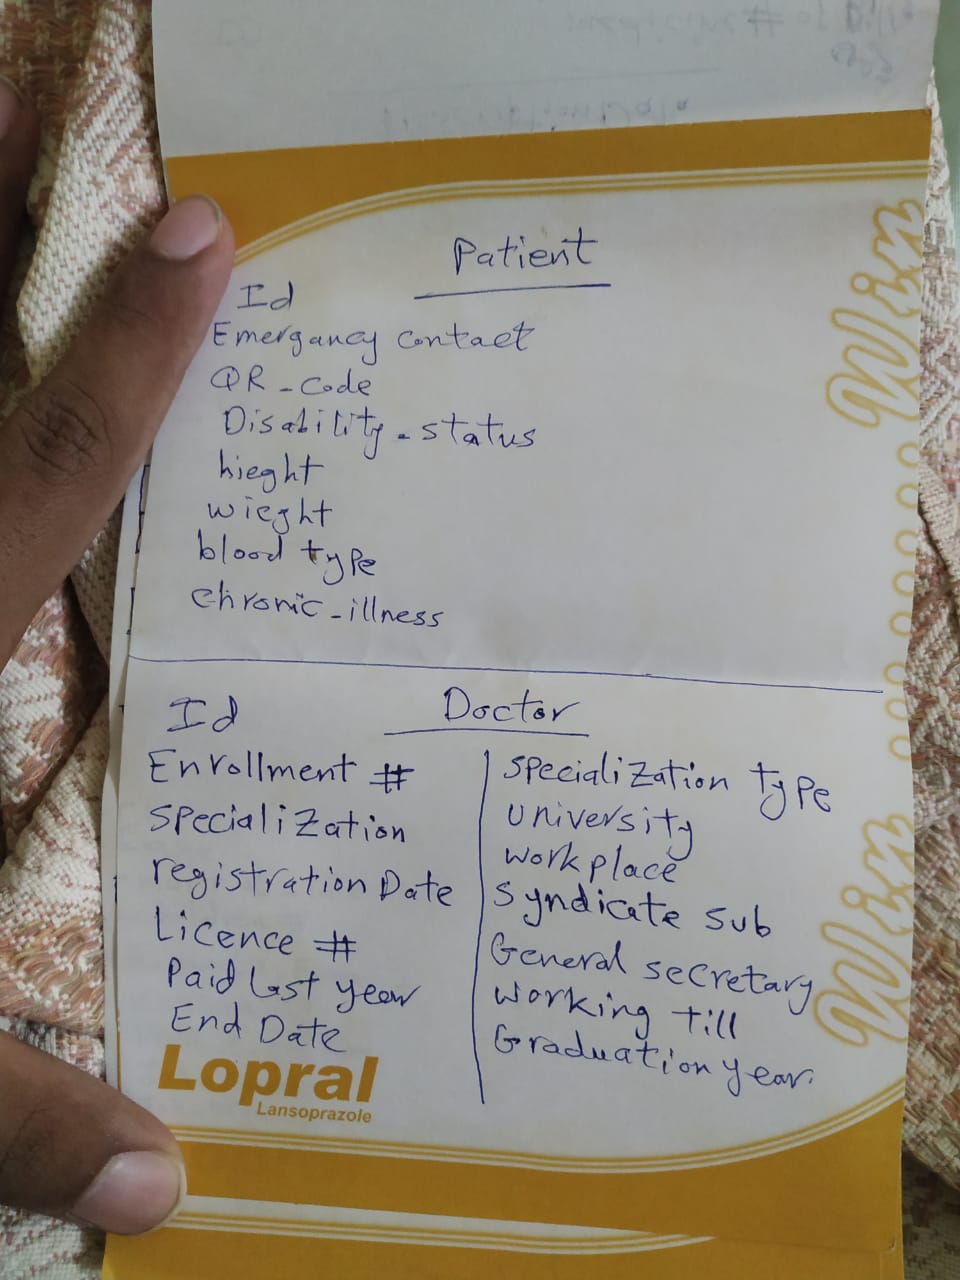 Patient
Id
Emergancy contact
QR-code
Disability-status
hieght
wieght
blood type
chronic-illness
Doctor
Id
Enrollment #
specialization
registration Date
Licence #
Paid last year
End Date
specialization type
university
work place
syndicate sub
General secretary
working till
Graduation year.
Lopral
Lansoprazole
Win
Win